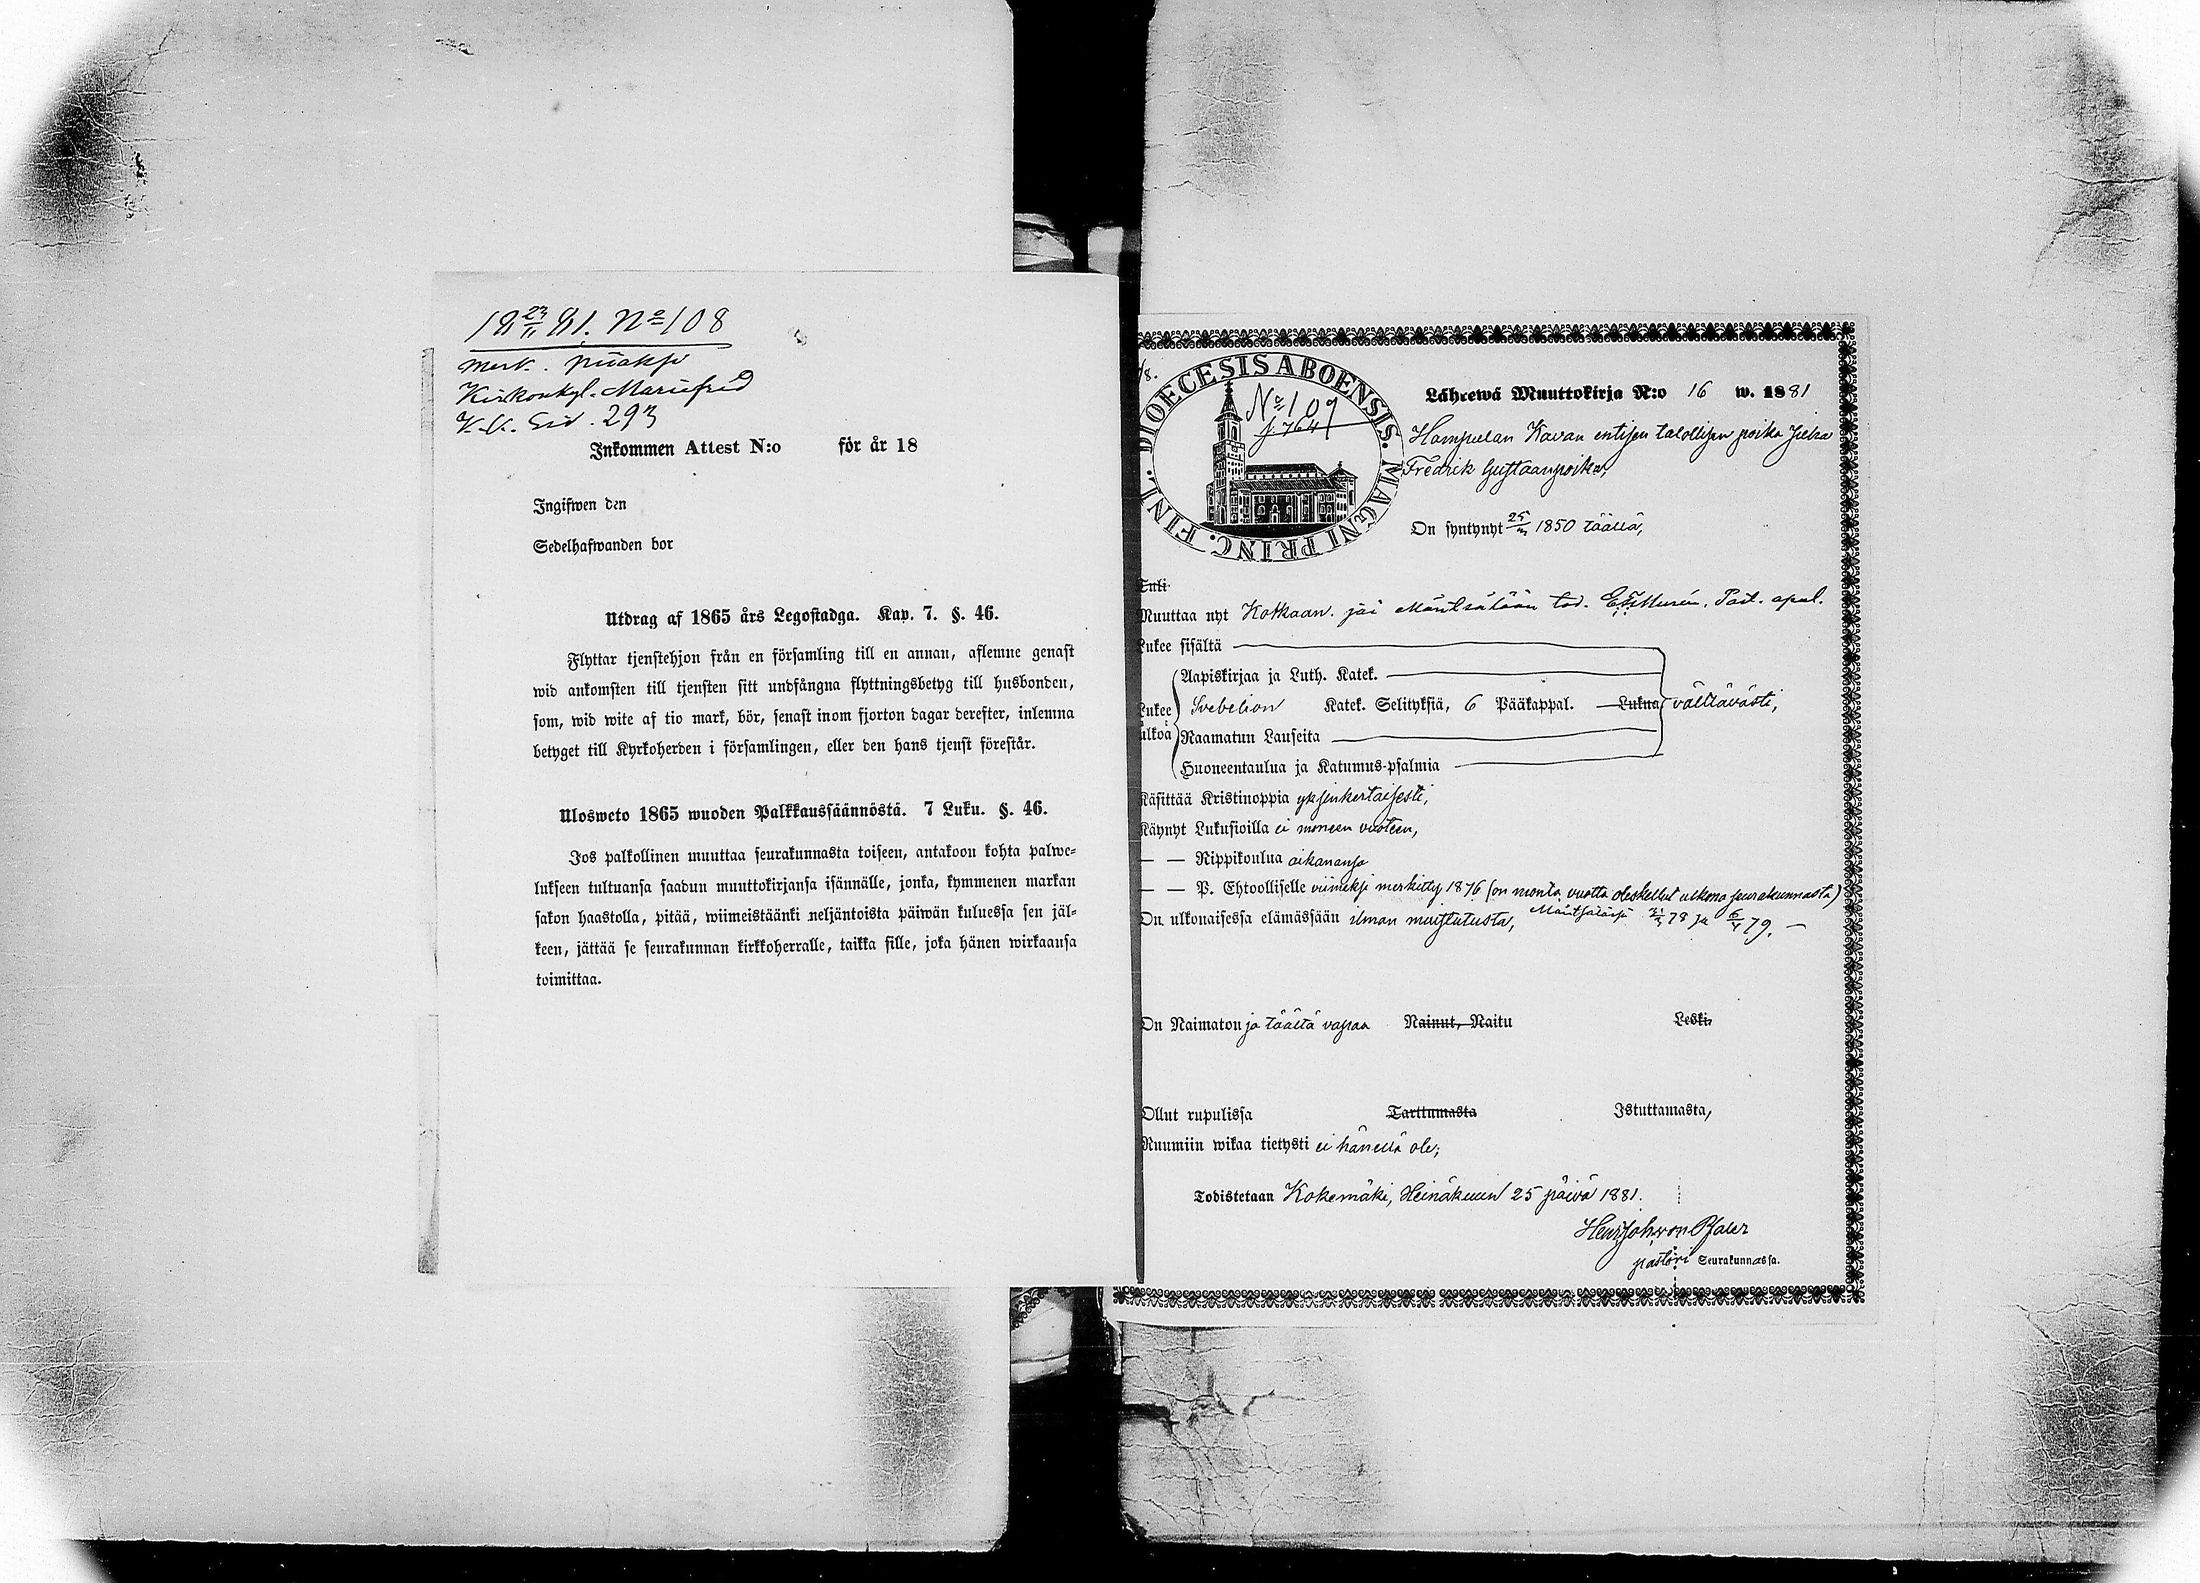 18 23/11 81. No 108
merk.
Kirkonkyl.
293
Inkommen Attest N:o för år 18
Ingifwen den
Sedelhafwanden bor
Utdrag af 1865 års Legostadga. Kap. 7. §. 46.
Flyttar tjenstehjon från en församling till en annan, aflemne genast
wid ankomsten till tjensten sitt undfångna flyttningsbetyg till husbonden,
som, wid wite af tio mark, bör, senast inom fjorton dagar derefter, inlemna
betyget till Kyrkoherden i församlingen, eller den hans tjenst förestår.
Ulosweto 1865 wuoden Palkkaussäännöstä. 7 Luku. §. 46.
Jos palkollinen muuttaa seurakunnasta toiseen, antakoon kohta palwe-
lukseen tultuansa saadun muuttokirjansa isännälle, jonka, kymmenen markan
sakon haastolla, pitää, wiimeistäänki neljäntoista päiwän kuluessa sen jäl-
keen, jättää se seurakunnan kirkkoherralle, taikka sille, joka hänen wirkaansa
toimittaa.
DIOECESIS ABOENSIS. MAGNI PRINC. FINL.
No 109
Lähtewä Muuttokirja N:o 16 w. 1881
Hampulan Kavan entisen talollisen poika
Fredrik Gustaanpoika,
On syntynyt 1850 täällä,
Tuli
Muuttaa nyt Kotkaan. jäi Mäntsälään tod. Past. apul.
Lukee sisältä
Aapiskirjaa ja Luth. Katek.
Lukee ulkoa Svebelion Katek. Selityksiä, 6 Pääkappal. Lukua välttävästi,
Raamatun Lauseita
Huoneentaulua ja Katumus-psalmia
Käsittää Kristinoppia yksinkertaisesti,
Käynyt Lukusioilla ei moneen vuoteen,
— — Rippikoulua aikanansa
— — P. Ehtoolliselle viimeksi merkitty 1876 (on monta vuotta oleskellut ulkona seurakunnasta)
On ulkonaisessa elämässään ilman muistutusta, Mäntsälässä 78 ja 79. —
On Naimaton ja täältä vapaa Nainut, Naitu Leski.
Ollut rupulissa Tarttumasta Istuttamasta,
Ruumiin wikaa tietysti ei hänellä ole;
Todistetaan Kokemäki, Heinäkuun 25 päivä 1881.
Henr Joh von Pfaler
pastori Seurakunnassa.